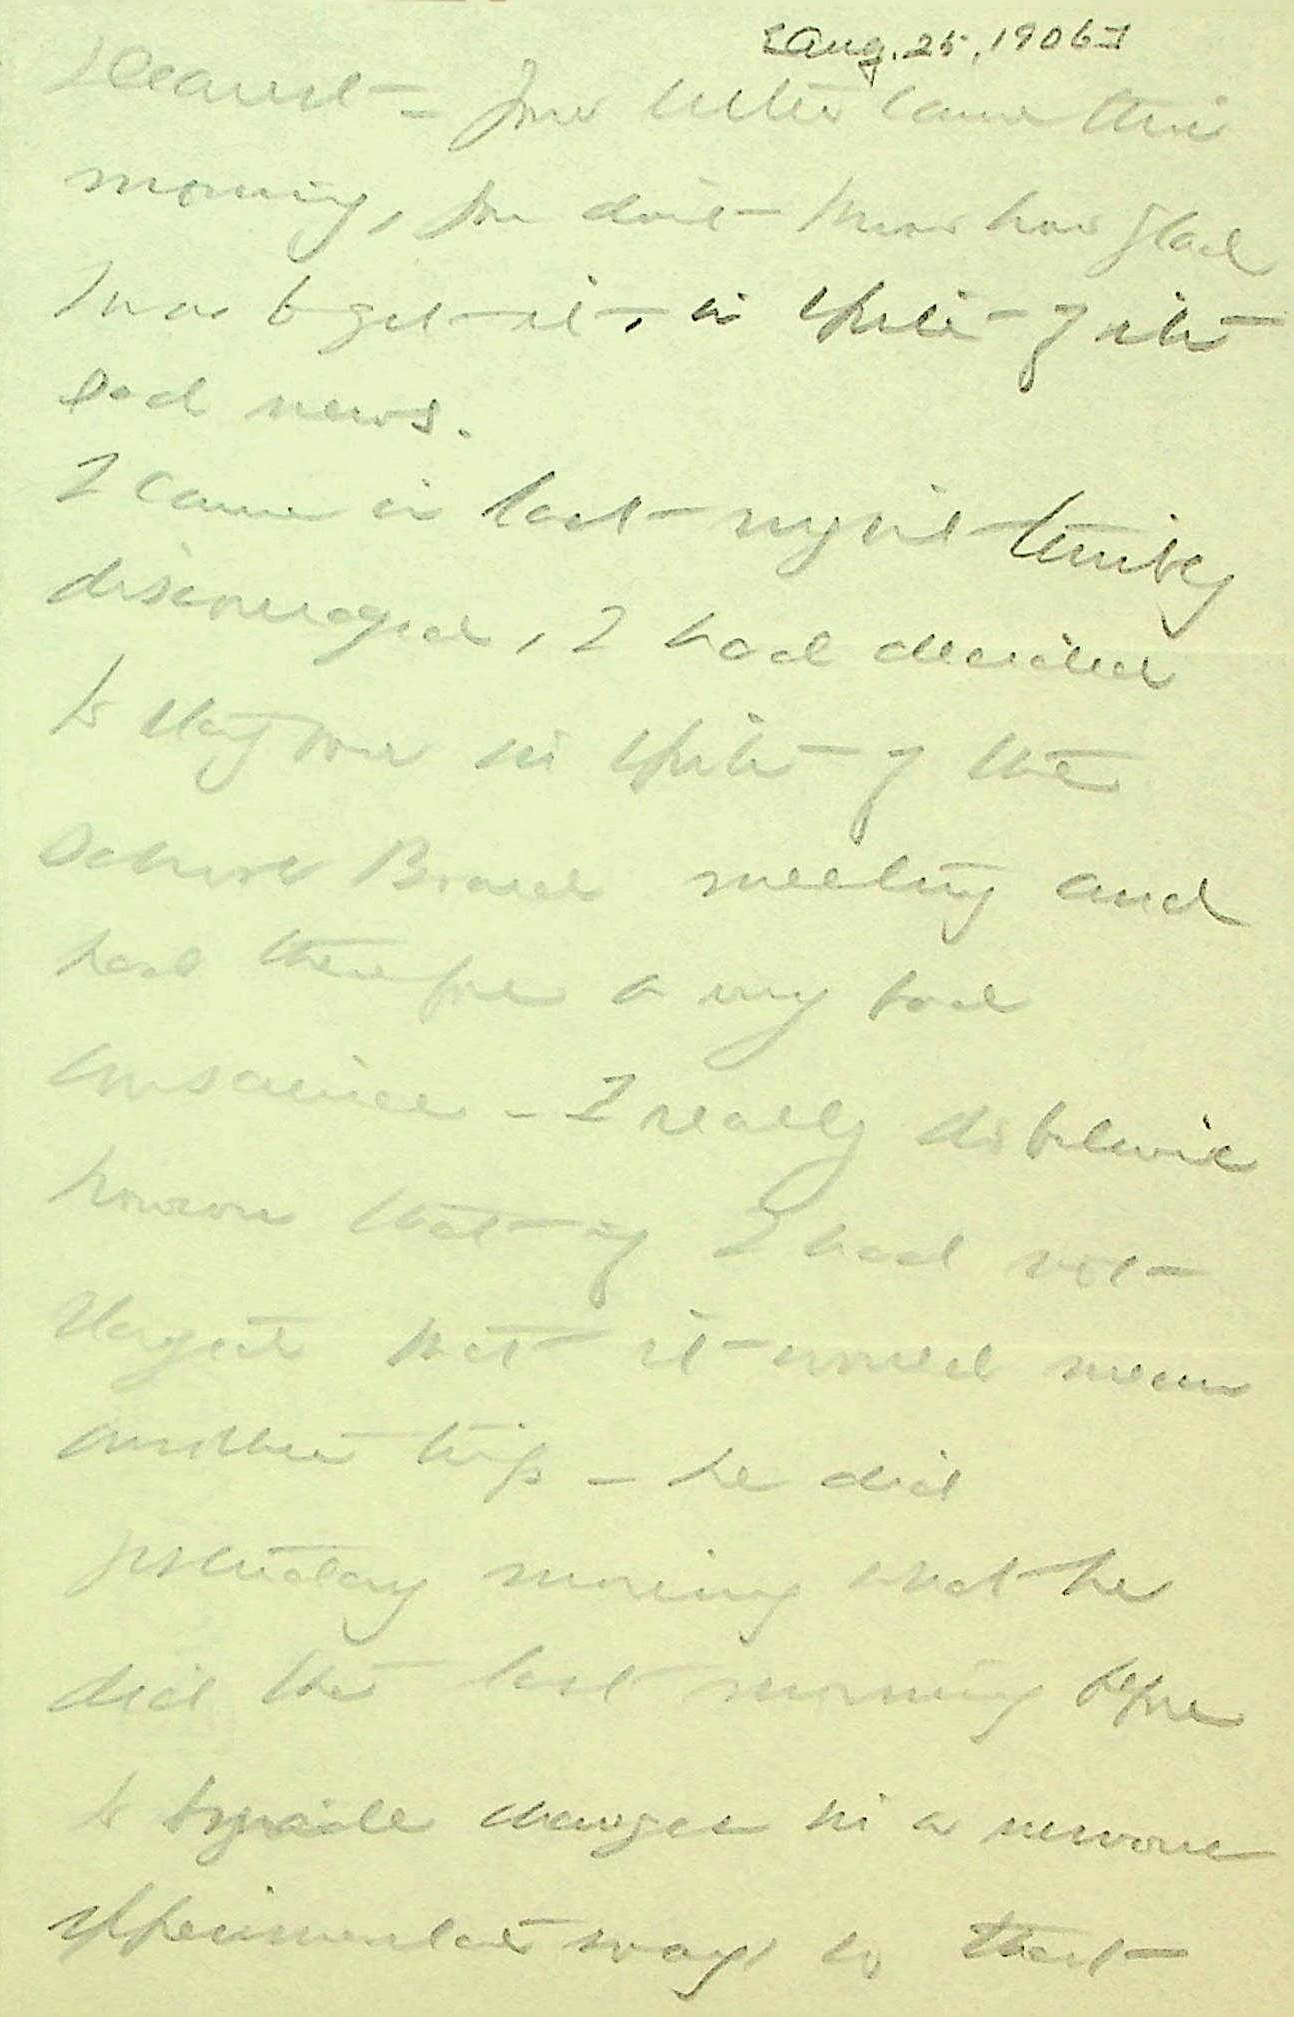 [Aug. 25, 1906]
Dearest - Your letter came this
morning, you don't know how glad
I was to get it, in spite of its
bad news.
I came in last night terribly
discouraged, I had decided
to stay over in spite of the
School Board meeting and
had therefore a very bad
conscience - I really do believe
however that if I had not
stayed that it would mean
another trip - he did
yesterday morning what he
did the last morning before
to make changes in a nervous
experimental way, so that